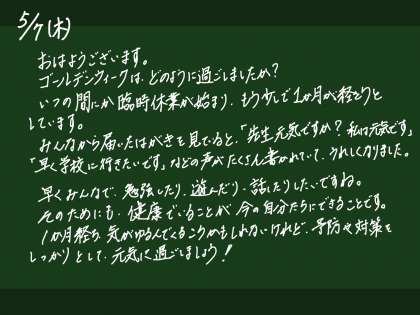 5/7(木)
おはようございます。
ゴールデンウィークは、どのように過ごしましたか?
いつの間にか臨時休業が始まり、もう少しで1か月が経とうと
しています。
みんなから届いたはがきを見ていると、「先生元気ですか?私は元気です」
「早く学校に行きたいです」などの声がたくさん書かれていて、うれしくなりました。
早くみんなで、勉強したり、遊んだり、話したりしたいですね。
そのためにも、健康でいることが今の自分たちにできることです。
1か月経ち、気がゆるんでくるころかもしれないけれど、予防や対策を
しっかりとして、元気に過ごしましょう!